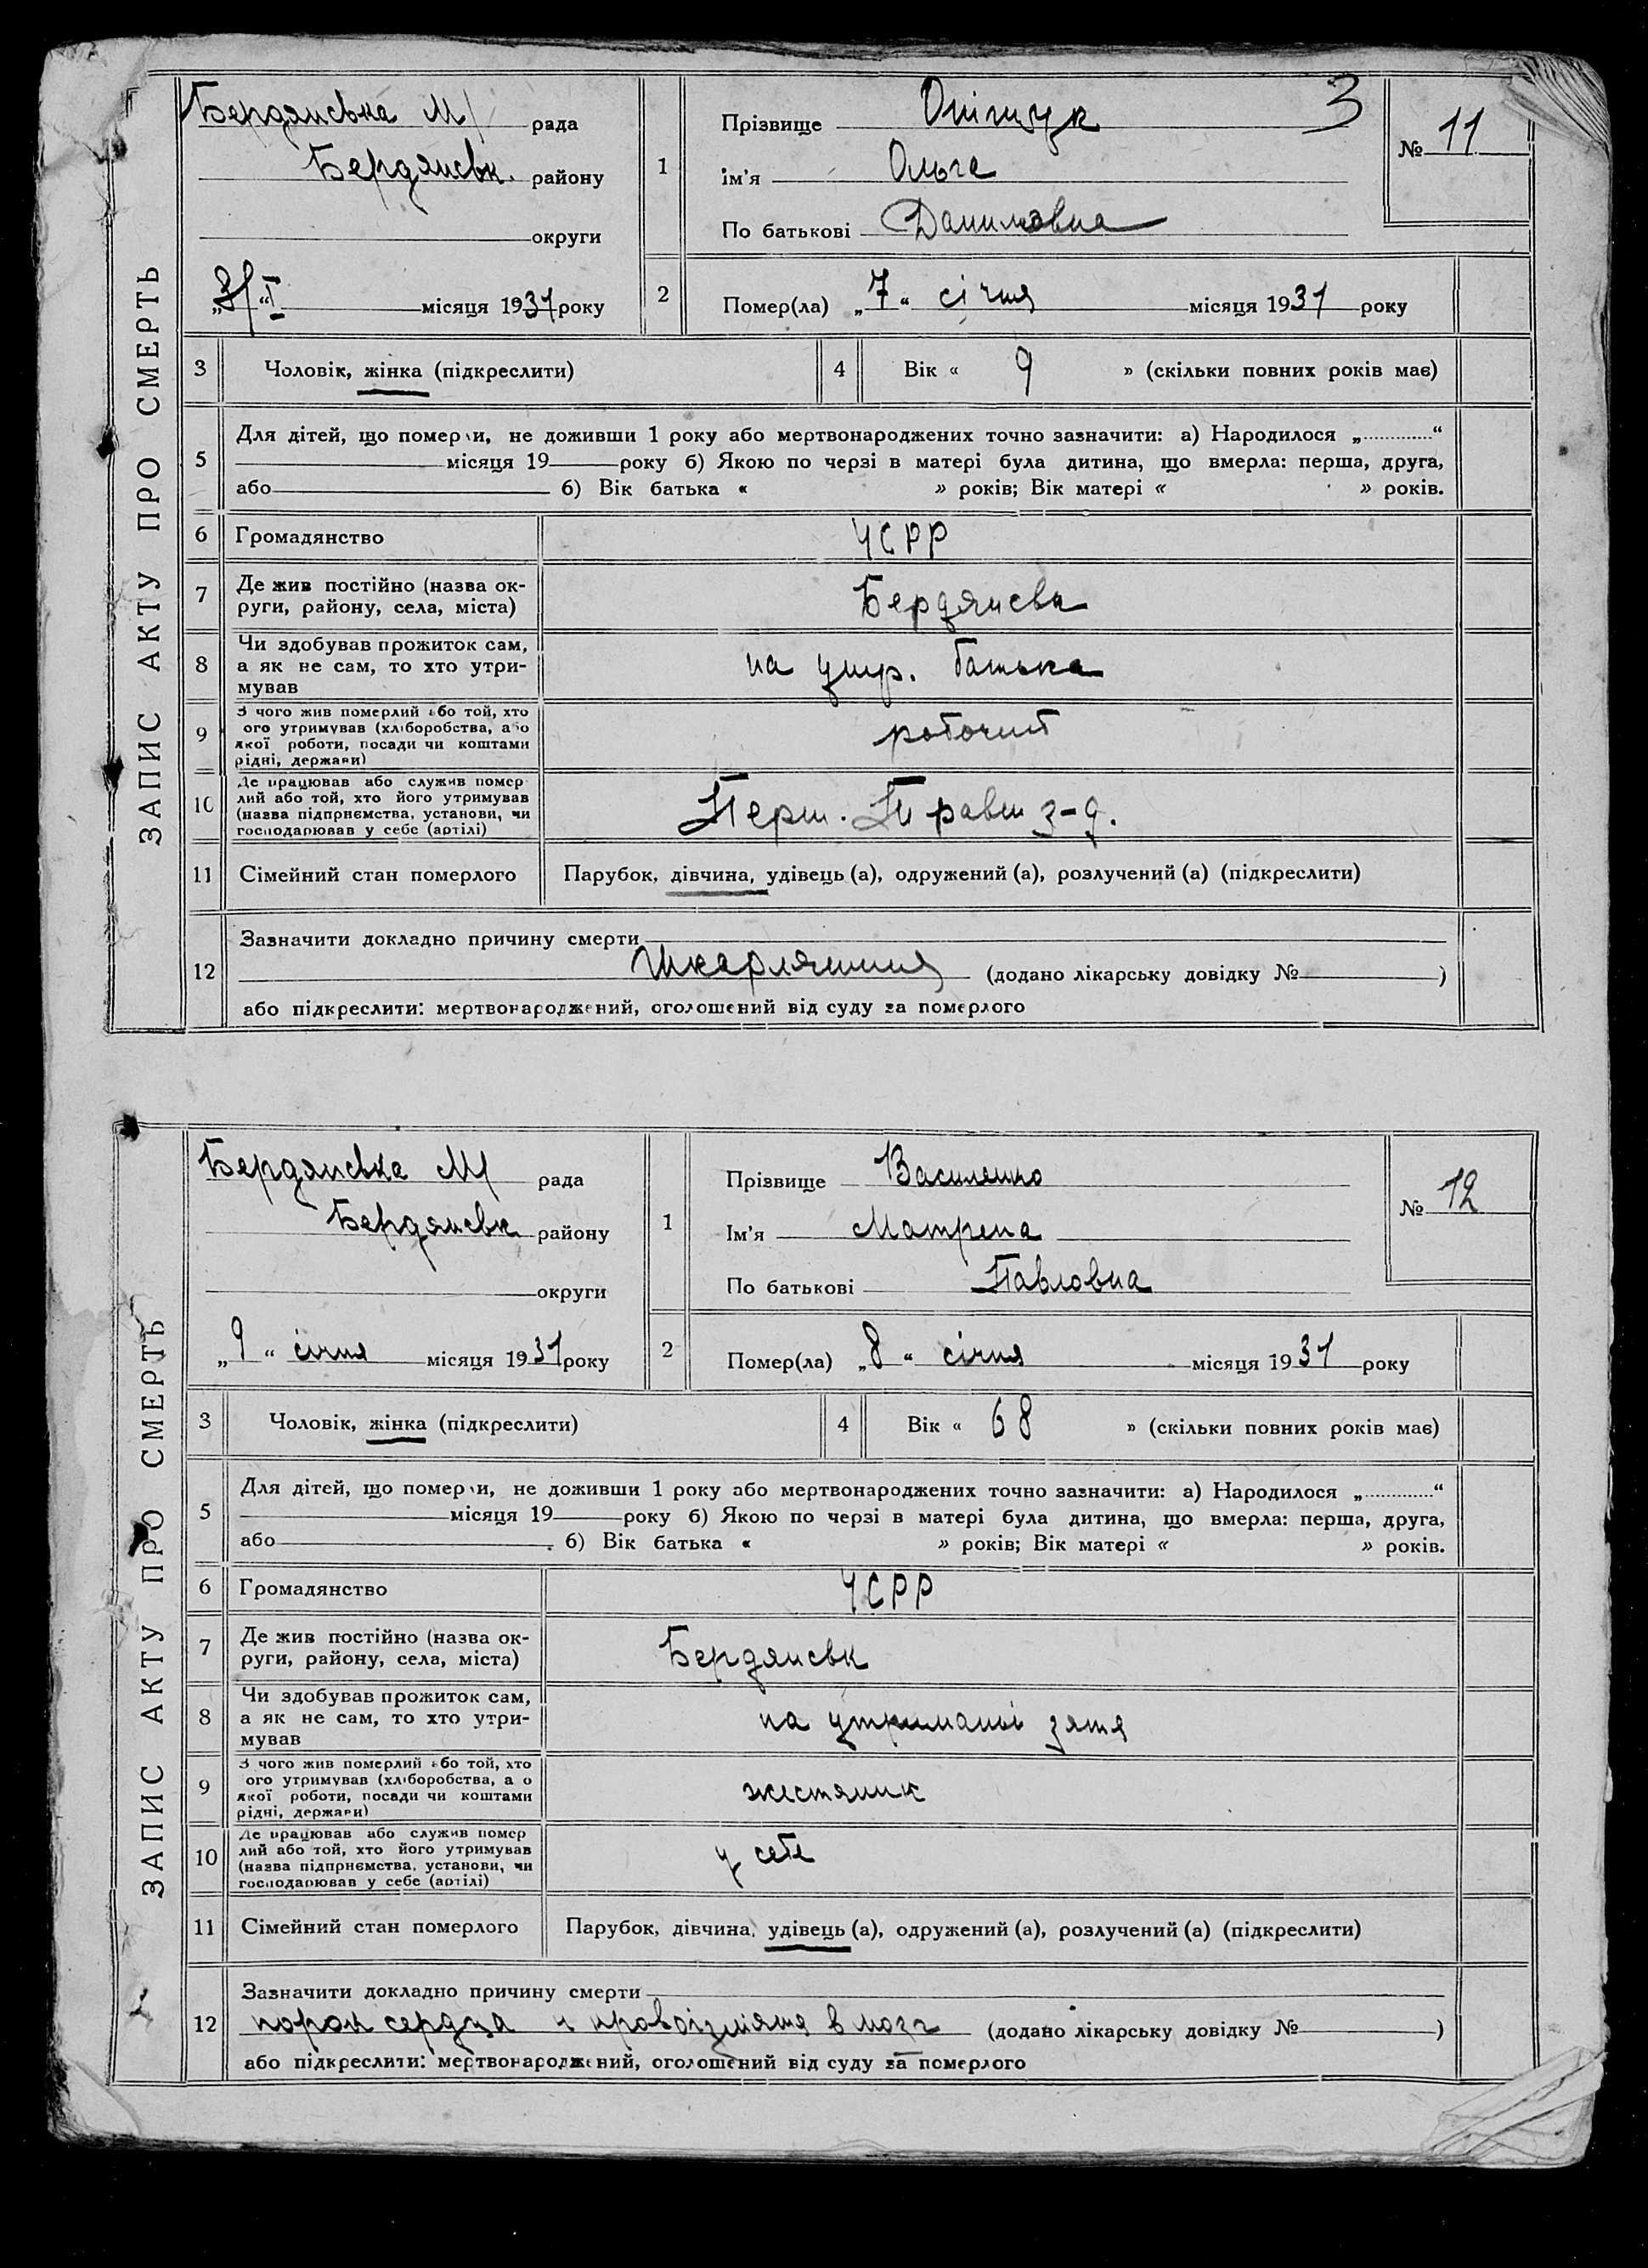 ЗАПИС АКТУ ПРО СМЕРТЬ
Бердянська М/ рада
Бердянськ. району
округи
місяця 1931 року
1
Прізвище Оніщук
3
Ім'я Ольга
По батькові Даниловна
№ 11
2
Помер(ла) „7“ січня місяця 1931 року
3 Чоловік, жінка (підкреслити)
4 Вік « 9 » (скільки повних років має)
5 Для дітей, що померли, не доживши 1 року або мертвонароджених точно зазначити: а) Народилося „ “
місяця 19 року б) Якою по черзі в матері була дитина, що вмерла: перша, друга,
або б) Вік батька « » років; Вік матері « » років.
6 Громадянство УСРР
7 Де жив постійно (назва ок-
руги, району, села, міста) Бердянськ
8 Чи здобував прожиток сам,
а як не сам, то хто утри-
мував на утр. батька
9 З чого жив померлий або той, хто
ого утримував (хліборобства, або
якої роботи, посади чи коштами
рідні, держави) робочий
10 Де працював або служив помер
лий або той, хто його утримував
(назва підприємства, установи, чи
господарював у себе (артілі) Перш. Травн з-д.
11 Сімейний стан померлого Парубок, дівчина, удівець (а), одружений (а), розлучений (а) (підкреслити)
12 Зазначити докладно причину смерти
Шкарлятина (додано лікарську довідку № )
або підкреслити: мертвонароджений, оголошений від суду за померлого
ЗАПИС АКТУ ПРО СМЕРТЬ
Бердянська М/ рада
Бердянськ району
округи
„9“ січня місяця 1931 року
1
Прізвище Василенко
Ім'я Матрена
По батькові Павловна
№ 12
2
Помер(ла) „8“ січня місяця 1931 року
3 Чоловік, жінка (підкреслити)
4 Вік « 68 » (скільки повних років має)
5 Для дітей, що померли, не доживши 1 року або мертвонароджених точно зазначити: а) Народилося „ “
місяця 19 року б) Якою по черзі в матері була дитина, що вмерла: перша, друга,
або б) Вік батька « » років; Вік матері « » років.
6 Громадянство УСРР
7 Де жив постійно (назва ок-
руги, району, села, міста) Бердянськ
8 Чи здобував прожиток сам,
а як не сам, то хто утри-
мував на утриманні зятя
9 З чого жив померлий або той, хто
ого утримував (хліборобства, а о
якої роботи, посади чи коштами
рідні, держави) жестяник
10 Де працював або служив помер
лий або той, хто його утримував
(назва підприємства, установи, чи
господарював у себе (артілі) у себе
11 Сімейний стан померлого Парубок, дівчина, удівець (а), одружений (а), розлучений (а) (підкреслити)
12 Зазначити докладно причину смерти
порок сердца і в мозг (додано лікарську довідку № )
або підкреслити: мертвонароджений, оголошений від суду за померлого